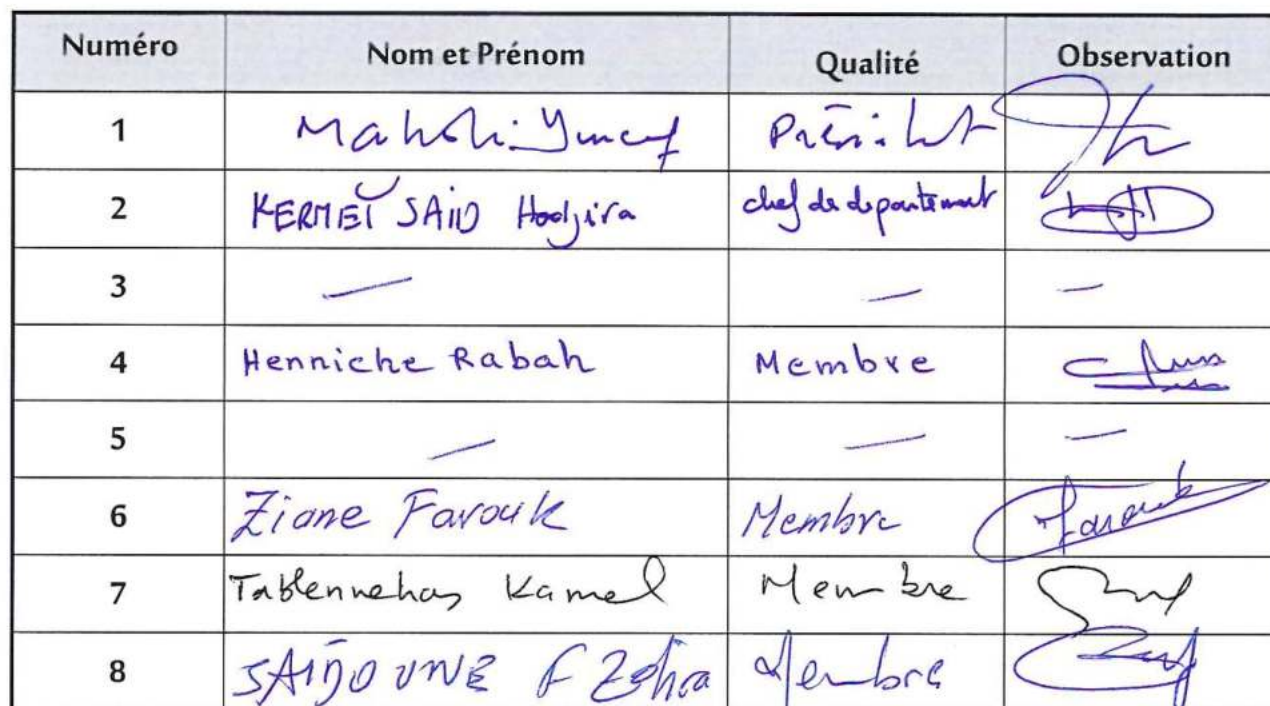 Numéro Nom et Prénom Qualité Observation
1 Youcef Président
2 KERMEÏ SAID Hadjira chef de departement
3 — — —
4 Henniche Rabah Membre
5 — — —
6 Ziane Farouk Membre Farouk
7 Tablennehas Kamel Membre
8 SAIDOUNE F Zohra Membre